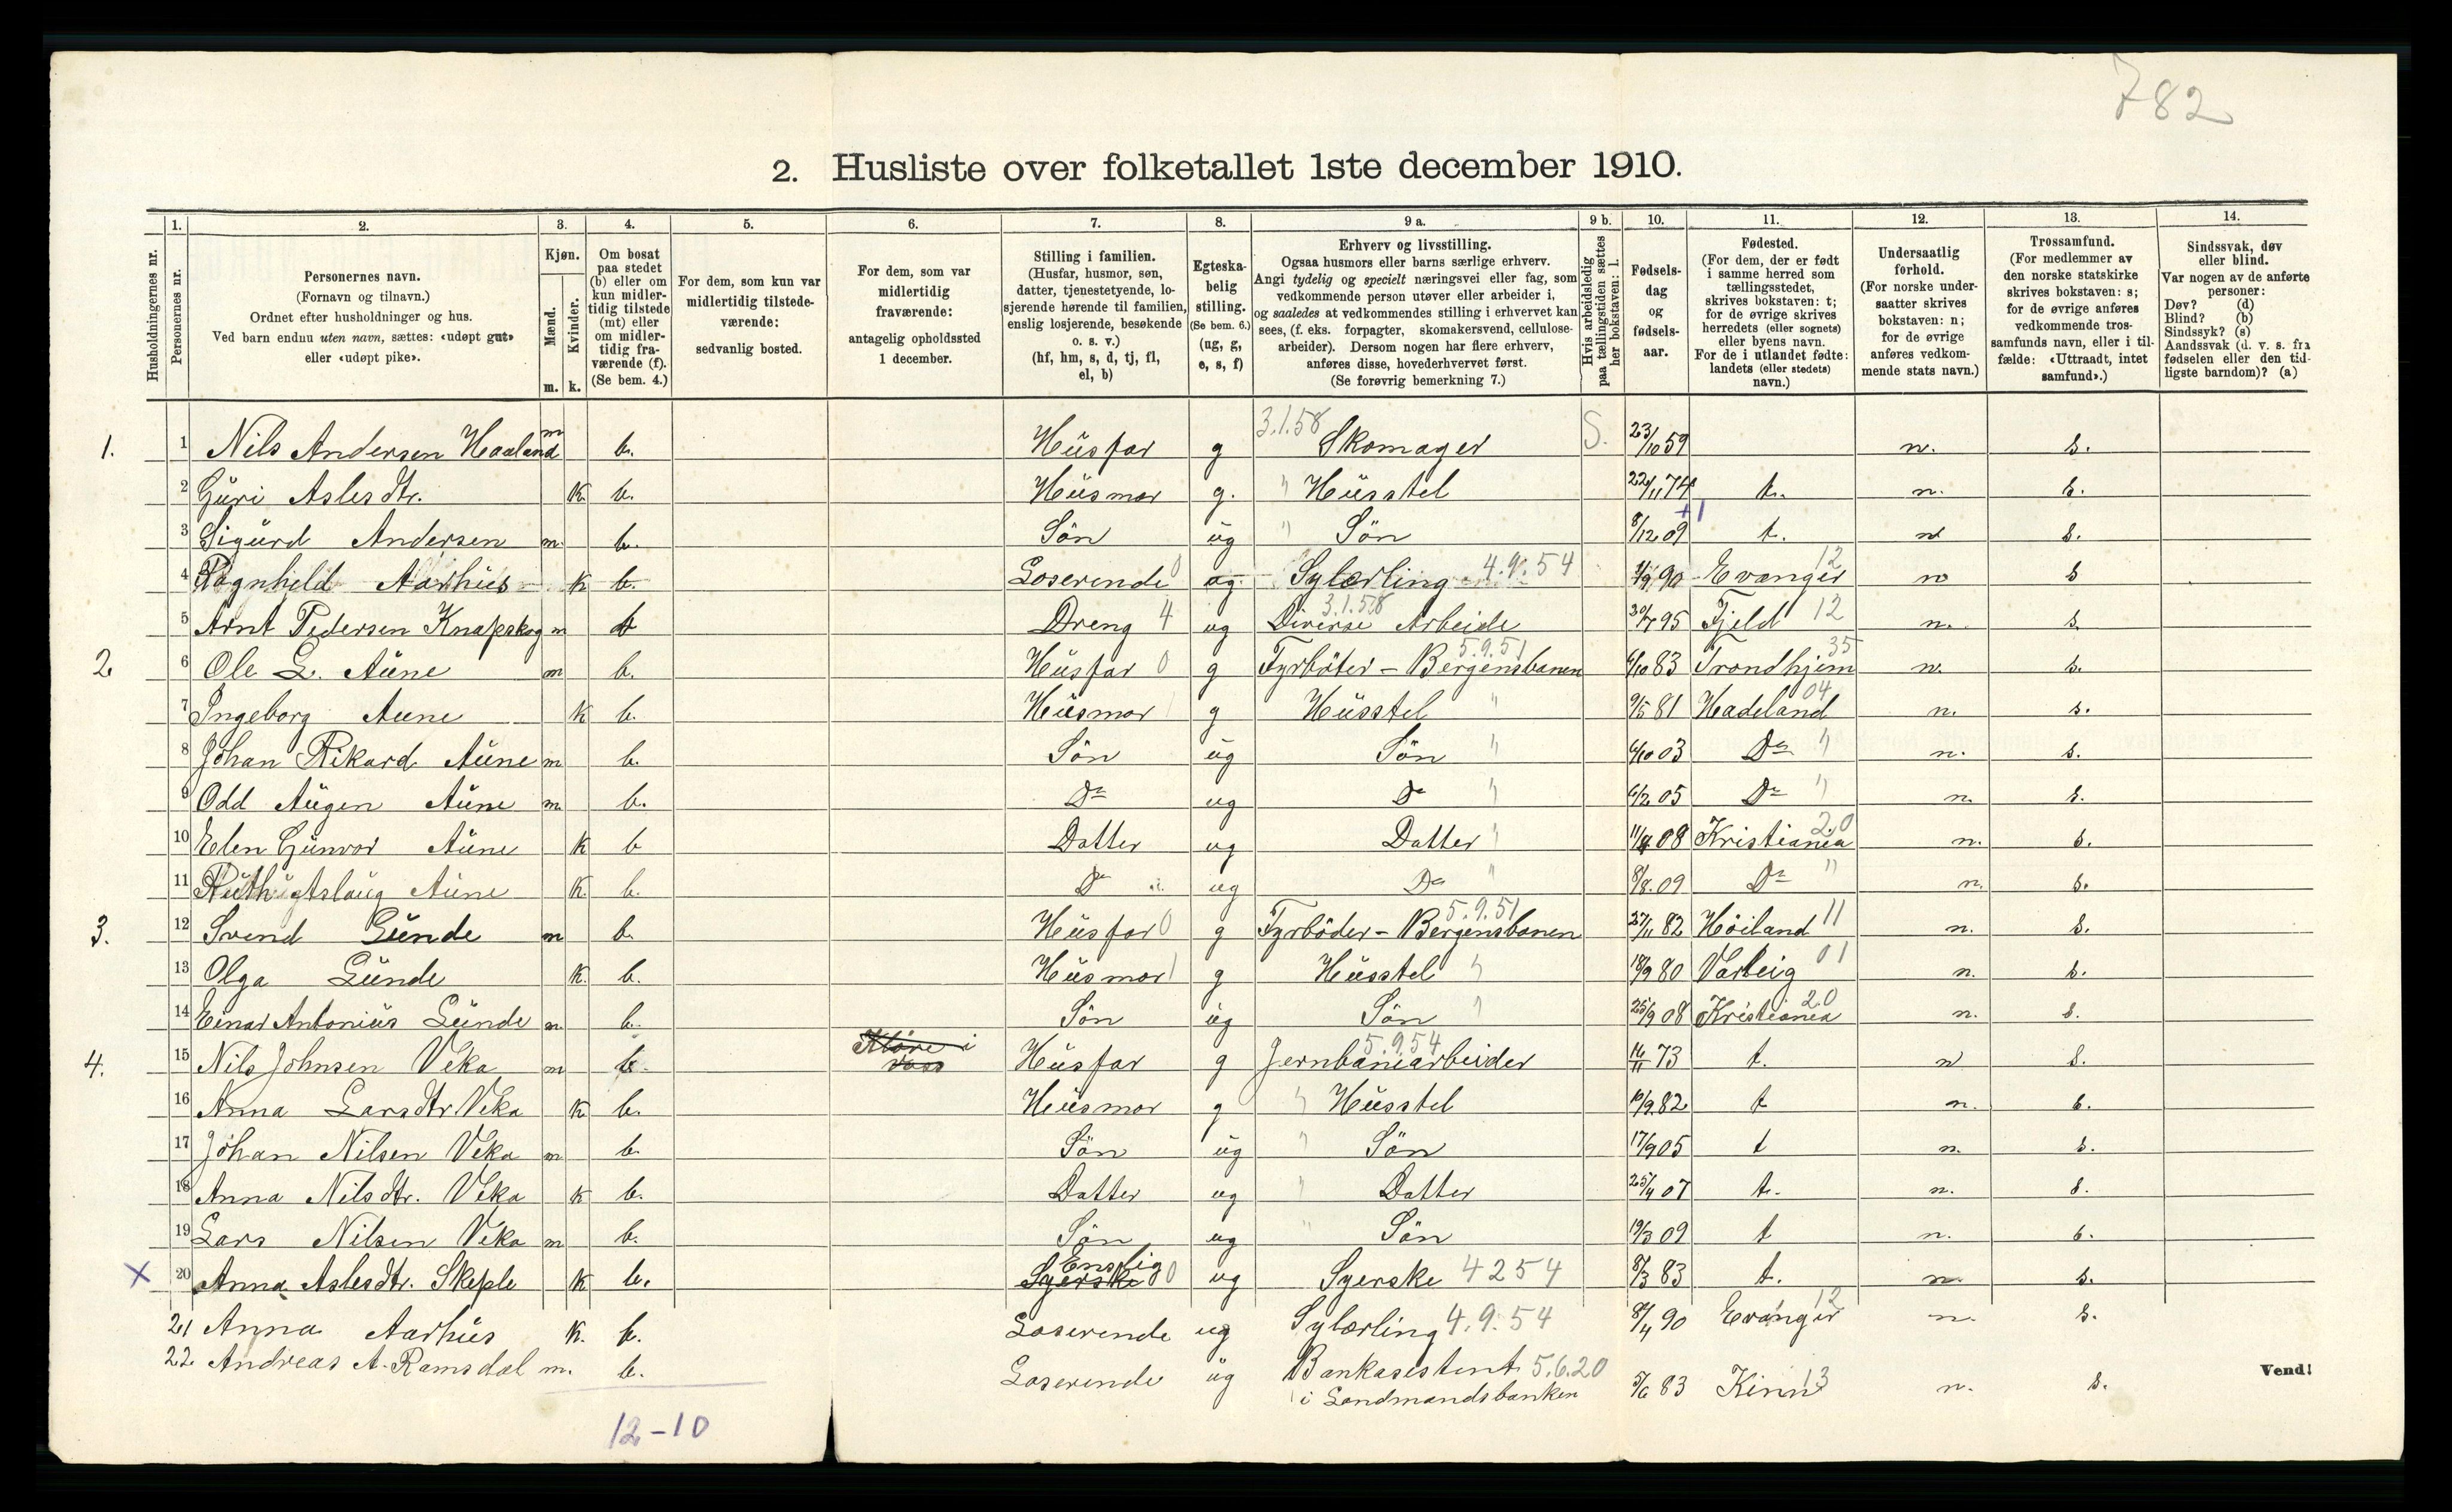 782
2. Husliste over folketallet 1ste december 1910.
1. 2. 3. 4. 5. 6. 7. 8. 9 a. 9 b. 10. 11. 12. 13. 14.
Husholdningernes nr.
Personernes nr.
Personernes navn.
(Fornavn og tilnavn.)
Ordnet efter husholdninger og hus.
Ved barn endnu uten navn, sættes: «udøpt gut»
eller «udøpt pike».
Kjøn.
Mænd.
Kvinder.
m. k.
Om bosat
paa stedet
(b) eller om
kun midler-
tidig tilstede
(mt) eller
om midler-
tidig fra-
værende (f).
(Se bem. 4.)
For dem, som kun var
midlertidig tilstede-
værende:
sedvanlig bosted.
For dem, som var
midlertidig
fraværende:
antagelig opholdssted
1 december.
Stilling i familien.
(Husfar, husmor, søn,
datter, tjenestetyende, lo-
sjerende hørende til familien,
enslig losjerende, besøkende
o. s. v.)
(hf, hm, s, d, tj, fl,
el, b)
Egteska-
belig
stilling.
(Se bem. 6.)
(ug, g,
e, s, f)
Erhverv og livsstilling.
Ogsaa husmors eller barns særlige erhverv.
Angi tydelig og specielt næringsvei eller fag, som
vedkommende person utøver eller arbeider i,
og saaledes at vedkommendes stilling i erhvervet kan
sees, (f. eks. forpagter, skomakersvend, cellulose-
arbeider). Dersom nogen har flere erhverv,
anføres disse, hovederhvervet først.
(Se forøvrig bemerkning 7.)
Hvis arbeidsledig
paa tællingstiden sættes
her bokstaven: l.
Fødsels-
dag
og
fødsels-
aar.
Fødested.
(For dem, der er født
i samme herred som
tællingsstedet,
skrives bokstaven: t;
for de øvrige skrives
herredets (eller sognets)
eller byens navn.
For de i utlandet fødte:
landets (eller stedets)
navn.)
Undersaatlig
forhold.
(For norske under-
saatter skrives
bokstaven: n;
for de øvrige
anføres vedkom-
mende stats navn.)
Trossamfund.
(For medlemmer av
den norske statskirke
skrives bokstaven: s;
for de øvrige anføres
vedkommende tros-
samfunds navn, eller i til-
fælde: «Uttraadt, intet
samfund».)
Sindssvak, døv
eller blind.
Var nogen av de anførte
personer:
Døv? (d)
Blind? (b)
Sindssyk? (s)
Aandssvak (d. v. s. fra
fødselen eller den tid-
ligste barndom)? (a)
1. 1 Nils Andersen Haaland m b. Husfar g 3.1.58 Skomager S. 23/10 59 n. s.
2 Guri Aslesdtr. K b. Husmor g. " Husstel 22/11 74 t. n. s.
3 Sigurd Andersen m. b. Sön ug " Sön 8/12 09 +1 t. n s.
4 Ragnhild Aarhus K b. Loserende 0 ug Sylærling 4.9.54 /9 90 Evanger 12 n s
5 Arnt Pedersen Knapskog m b Dreng 4 ug Diverse Arbeide 3.1.58 30/7 95 Fjeld 12 n. s.
2. 6 Ole L. Aune m b. Husfar 0 g Fyrböter - Bergensbanen 5.9.51 6/10 83 Trondhjem 35 n. s.
7 Ingeborg Aune K b. Husmor g Husstel " 9/5 81 Hadeland 04 n. s.
8 Johan Rikard Aune m b. Sön ug Sön " 6/10 03 Do " n. s.
9 Odd Augen Aune m. b. Do ug Do " 6/2 05 Do " n. s.
10 Elen Gunvor Aune K b Datter ug Datter " 11/4 08 Kristiania 20 n. s.
11 Ruth Aslaug Aune K. b. Do ug Do " 8/8 09 Do " n. s.
3. 12 Svend Lunde m b. Husfar 0 g Fyrböder - Bergensbanen 5.9.51 27/11 82 Höiland 11 n. s.
13 Olga Lunde K. b. Husmor 1 g Husstel " 18/9 80 Varteig 01 n. s.
14 Einar Antonius Lunde m. b. Sön ug Sön " 25/9 08 Kristiania 20 n. s.
4. 15 Nils Johnsen Veka m b. Klöve i Voss Husfar g Jernbanearbeider 5.9.54 14/11 73 t. n s.
16 Anna Larsdtr Veka K b. Husmor g " Husstel 10/9 82 t n. s.
17 Johan Nilsen Veka m b. Sön ug " Sön 17/9 05 t n. s.
18 Anna Nilsdtr. Veka K b. Datter ug " Datter 25/4 07 t. n. s.
19 Lars Nilsen Veka m b. Sön ug " Sön 19/3 09 t n. s.
X 20 Anna Aslesdtr. Skeple K b. Syerske Enslig 0 ug Syerske 4 2 5 4 8/3 83 t. n. s.
21 Anna Aarhus K. b. Loserende ug Sylærling 4.9.54 8/4 90 Evanger 12 n. s.
22. Andreas A. Ramsdal m. b. Loserende ug Bankasistent 5.6.20 5/6 83 Kinn 13 n. s.
i Landmandsbanken
Vend!
12-10